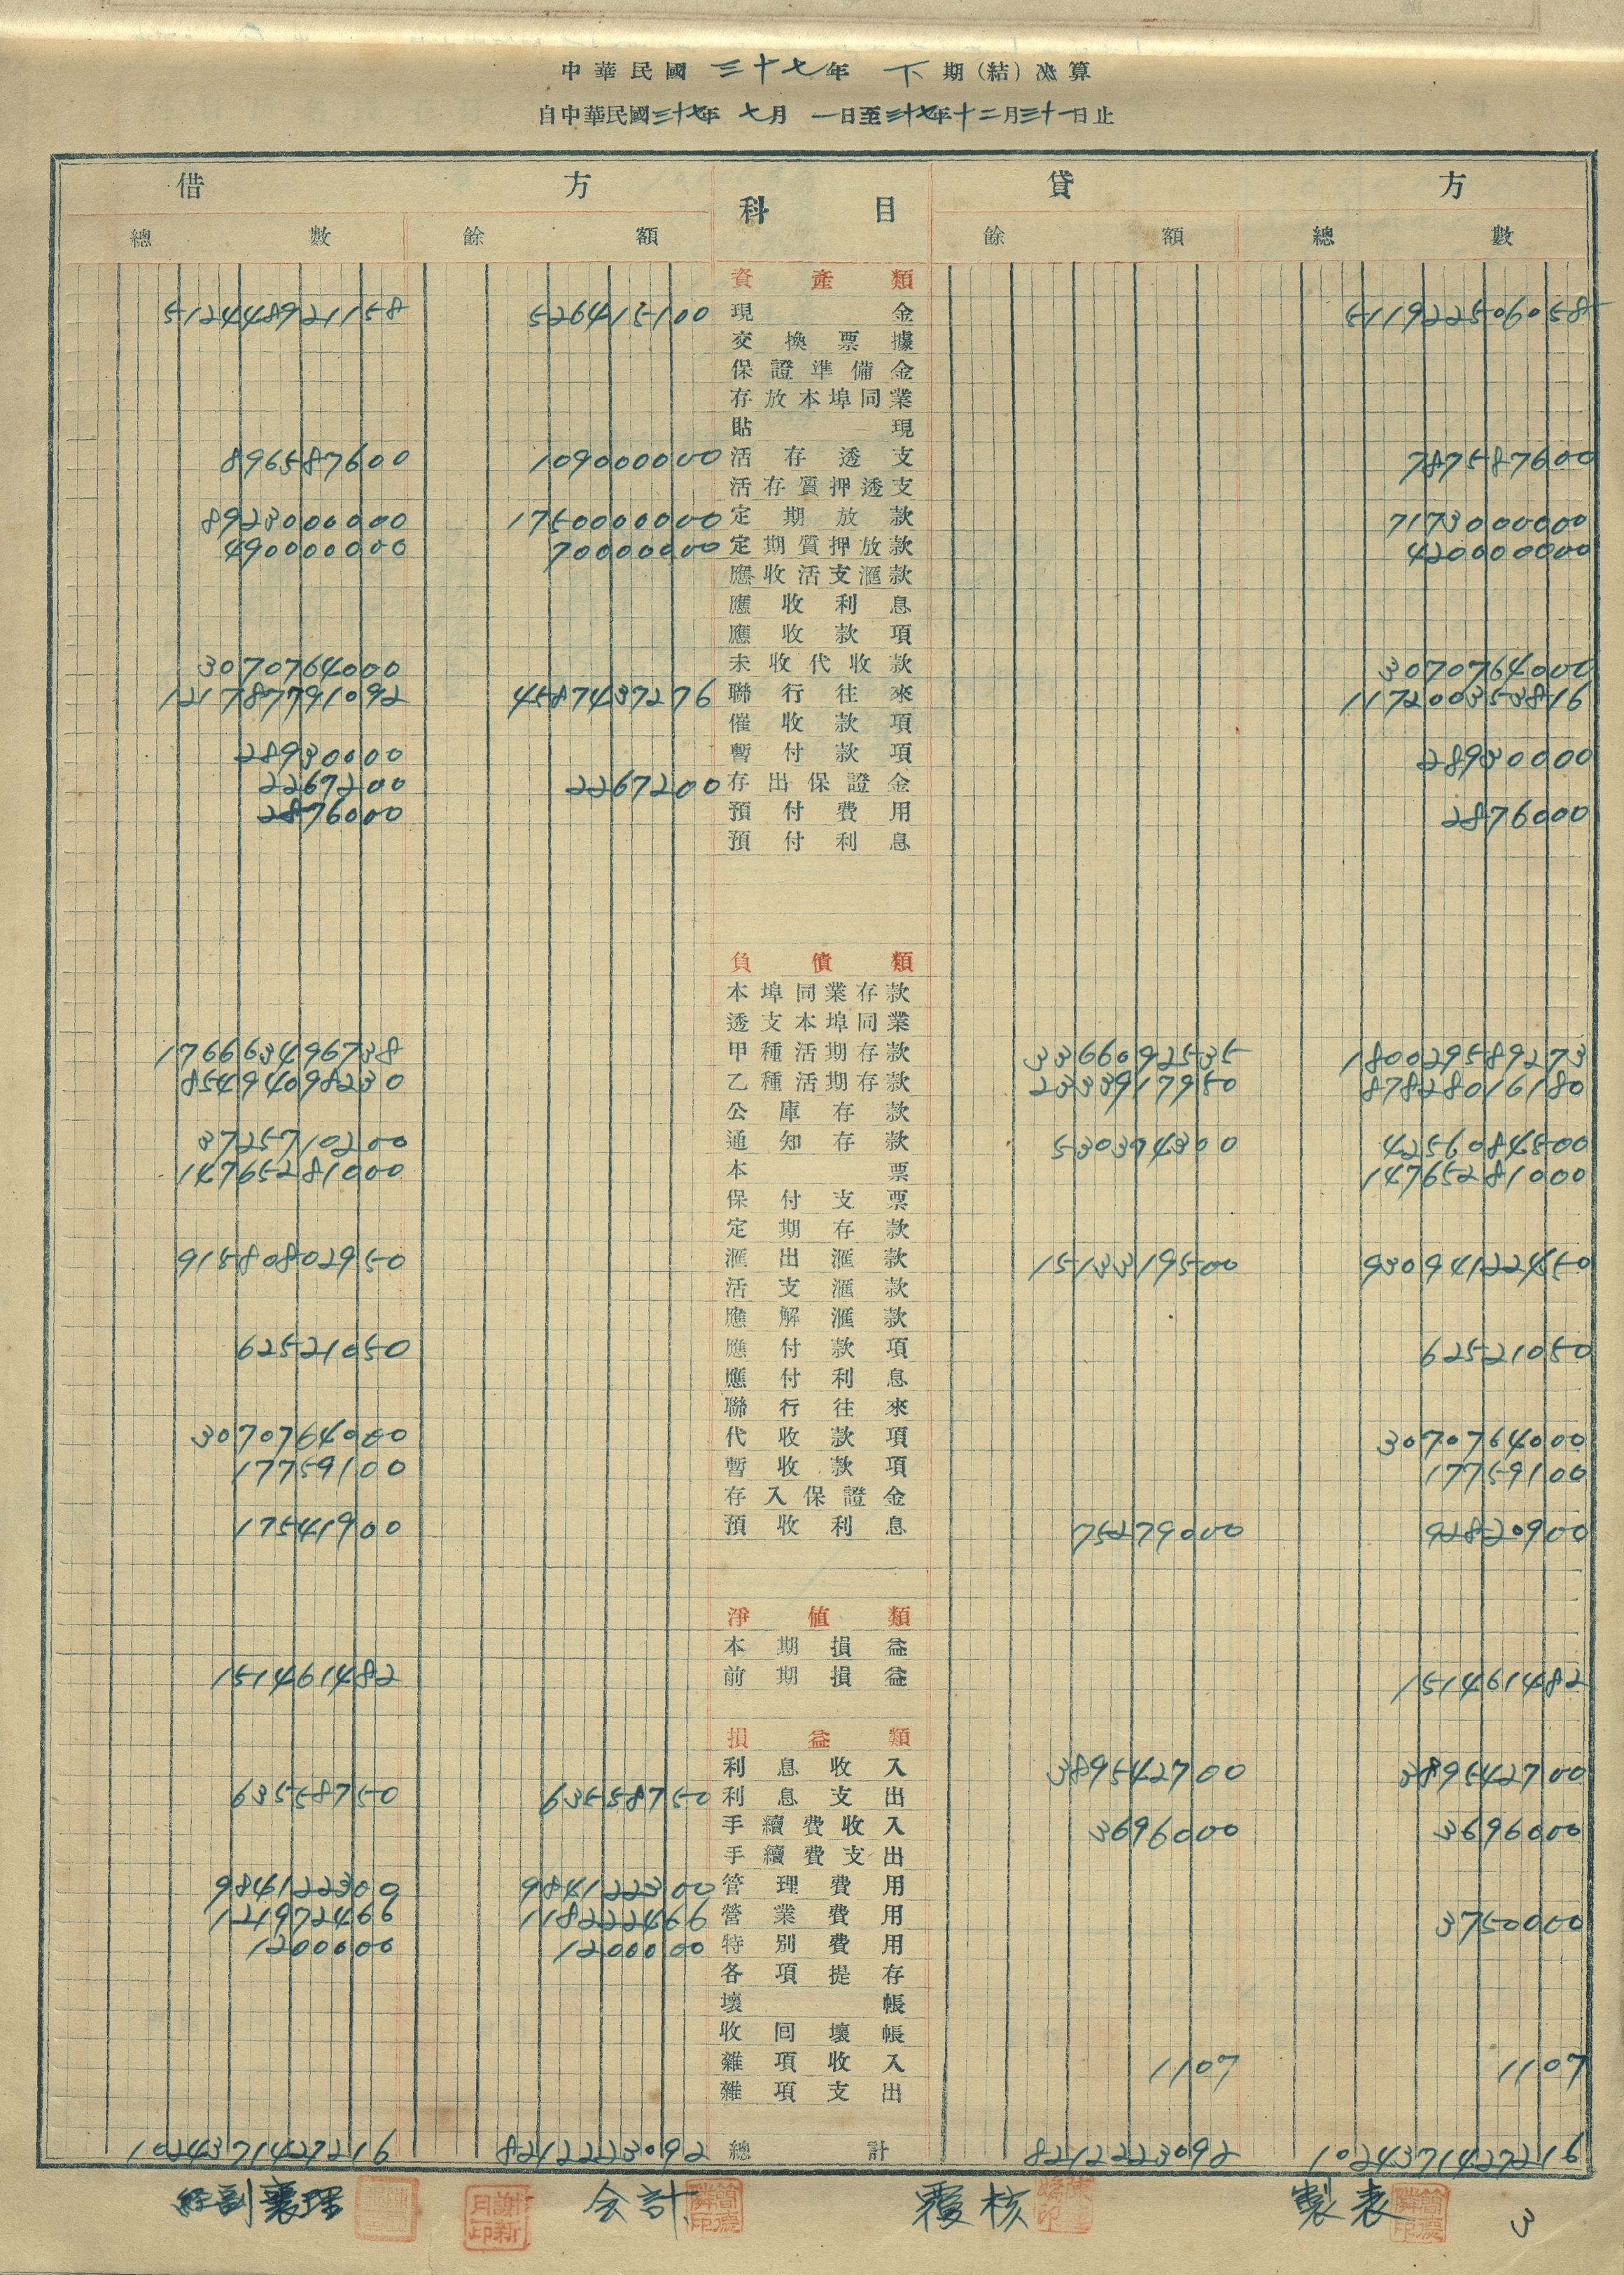 中華民國三十七年 下期(結)決算
自中華民國三十七年 七月 一日至三十七年十二月三十一日止
借方 科目 貸方
總數 餘額 餘額 總數
資產類
512448921158 526415100 現金 511922506058
交換票據
保證準備金
存放本埠同業
貼現
896587600 109000000 活存透支 787587600
活存質押透支
8923000000 1750000000 定期放款 7173000000
490000000 70000000 定期質押放款 420000000
應收活支滙款
應收利息
應收款項
3070764000 未收代收款 3070764000
121787791092 4587437276 聯行往來 117200353816
催收款項
28930000 暫付款項 28930000
2267200 2267200 存出保證金
2876000 預付費用 2876000
預付利息
負債類
本埠同業存款
透支本埠同業
176663496738 甲種活期存款 3366092535 180029589273
85494098230 乙種活期存款 2333917950 87828016180
公庫存款
3725710200 通知存款 530374300 4256084500
14765281000 本票 14765281000
保付支票
定期存款
91580802950 滙出滙款 1513319500 93094122450
活支滙款
應解滙款
62521050 應付款項 62521050
應付利息
聯行往來
3070764000 代收款項 3070764000
17759100 暫收款項 17759100
存入保證金
17541900 預收利息 75279000 92820900
淨值類
本期損益
151461482 前期損益 151461482
損益類
利息收入 389542700 389542700
63558750 63558750 利息支出
手續費收入 3696000 3696000
手續費支出
984122300 984122300 管理費用
121972466 118222466 營業費用 3750000
1200000 1200000 特別費用
各項提存
壞帳
收回壞帳
雜項收入 1107 1107
雜項支出
1024371427216 8212223092 總計 8212223092 1024371427216
經副襄理 謝新月印 会計 簡德麟印 覆核 製表 簡德麟印 3